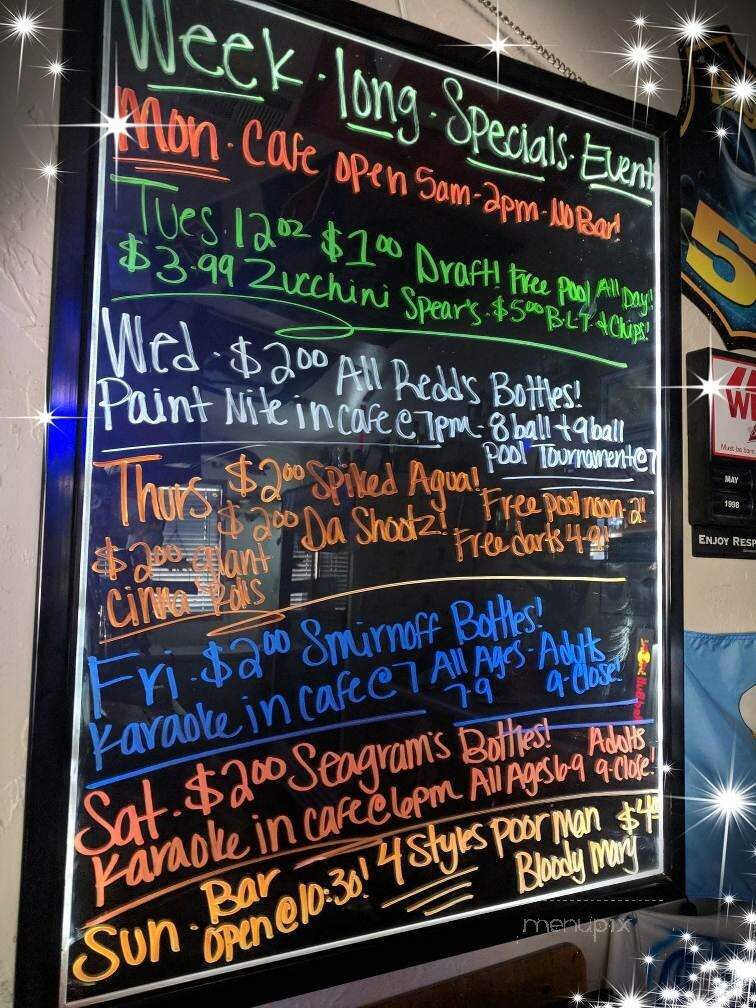 Week · long · Specials · Event
Mon · Cafe open 5am - 2pm - No Bar!
Tues. 12oz $1.00 Draft! Free Pool All Day!
$3.99 Zucchini Spear's · $5.00 B-L-T & Chips!
Wed · $2.00 All Redd's Bottles!
Paint Nite in cafe @ 7pm - 8 ball + 9 ball
Pool Tournament @ 7
Thurs $2.00 Spiked Agua! Free pool noon-2!
$2.00 Da Shootz! Free darts 4-9!
$2.00 Giant
Cinna Rolls
Fri · $2.00 Smirnoff Bottles!
Karaoke in cafe @ 7 All Ages 7-9 · Adults 9-Close!
Sat · $2.00 Seagram's Bottles! Adults
Karaoke in cafe @ 6pm All Ages 6-9 9-Close!
Sun · Bar open @ 10:30! 4 Styles Poor man $4
Bloody Mary
menupix
5
MAY
1998
ENJOY RESP